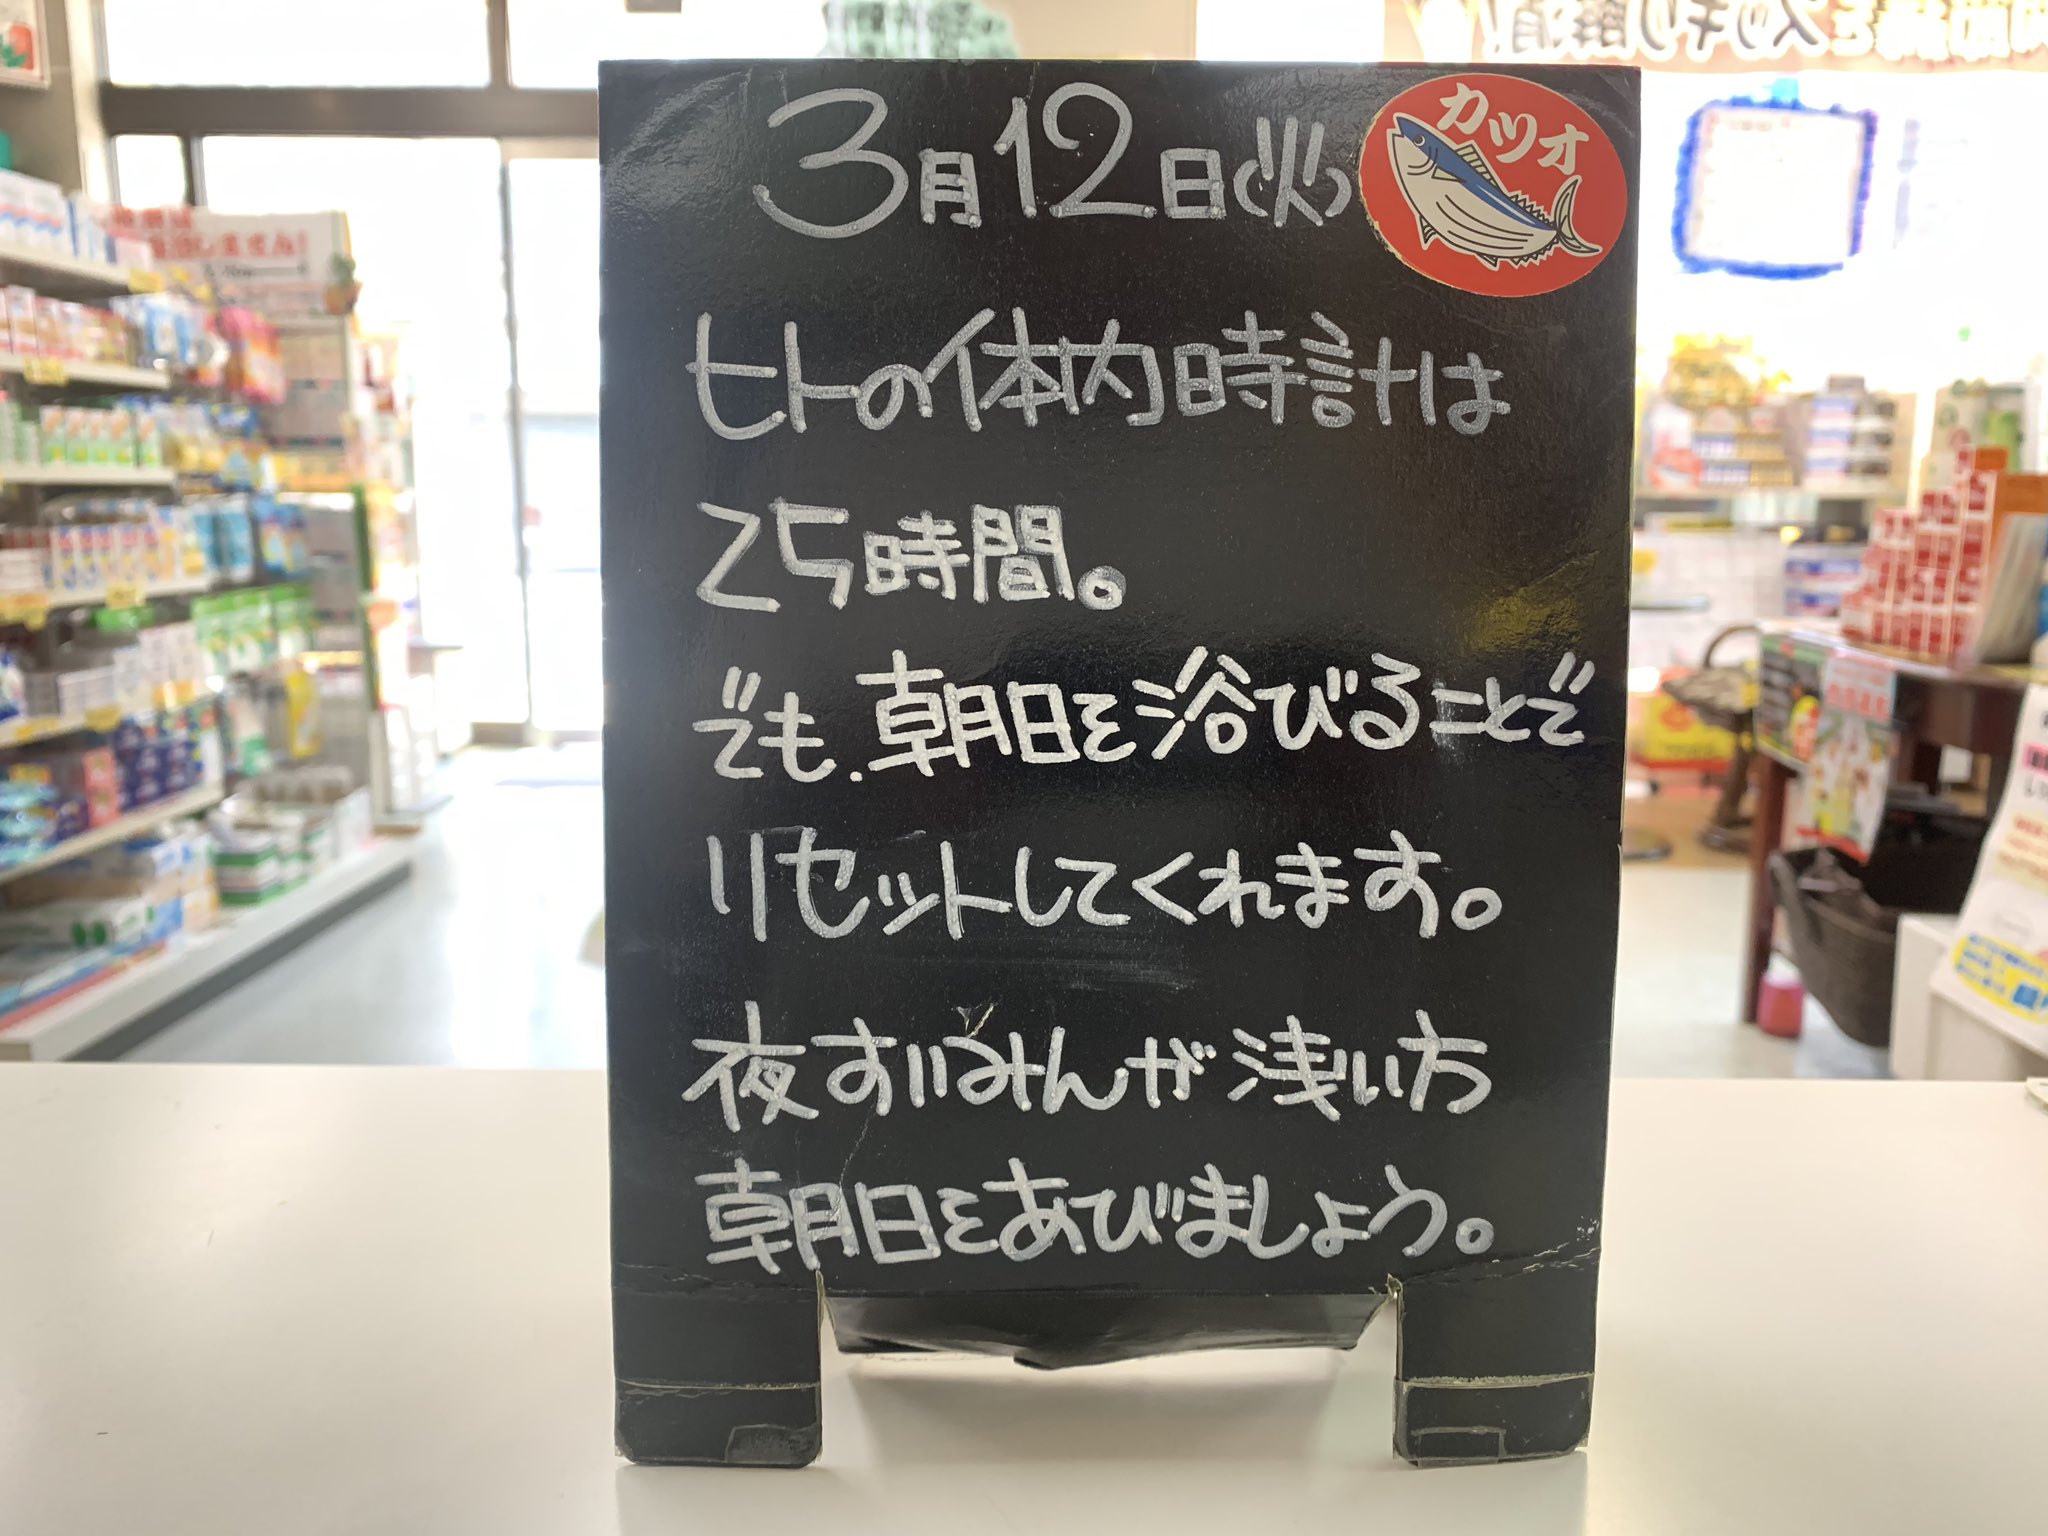 3月12日(火)
カツオ
ヒトの体内時計は
25時間。
でも、朝日を浴びることで
リセットしてくれます。
夜すいみんが浅い方
朝日をあびましょう。